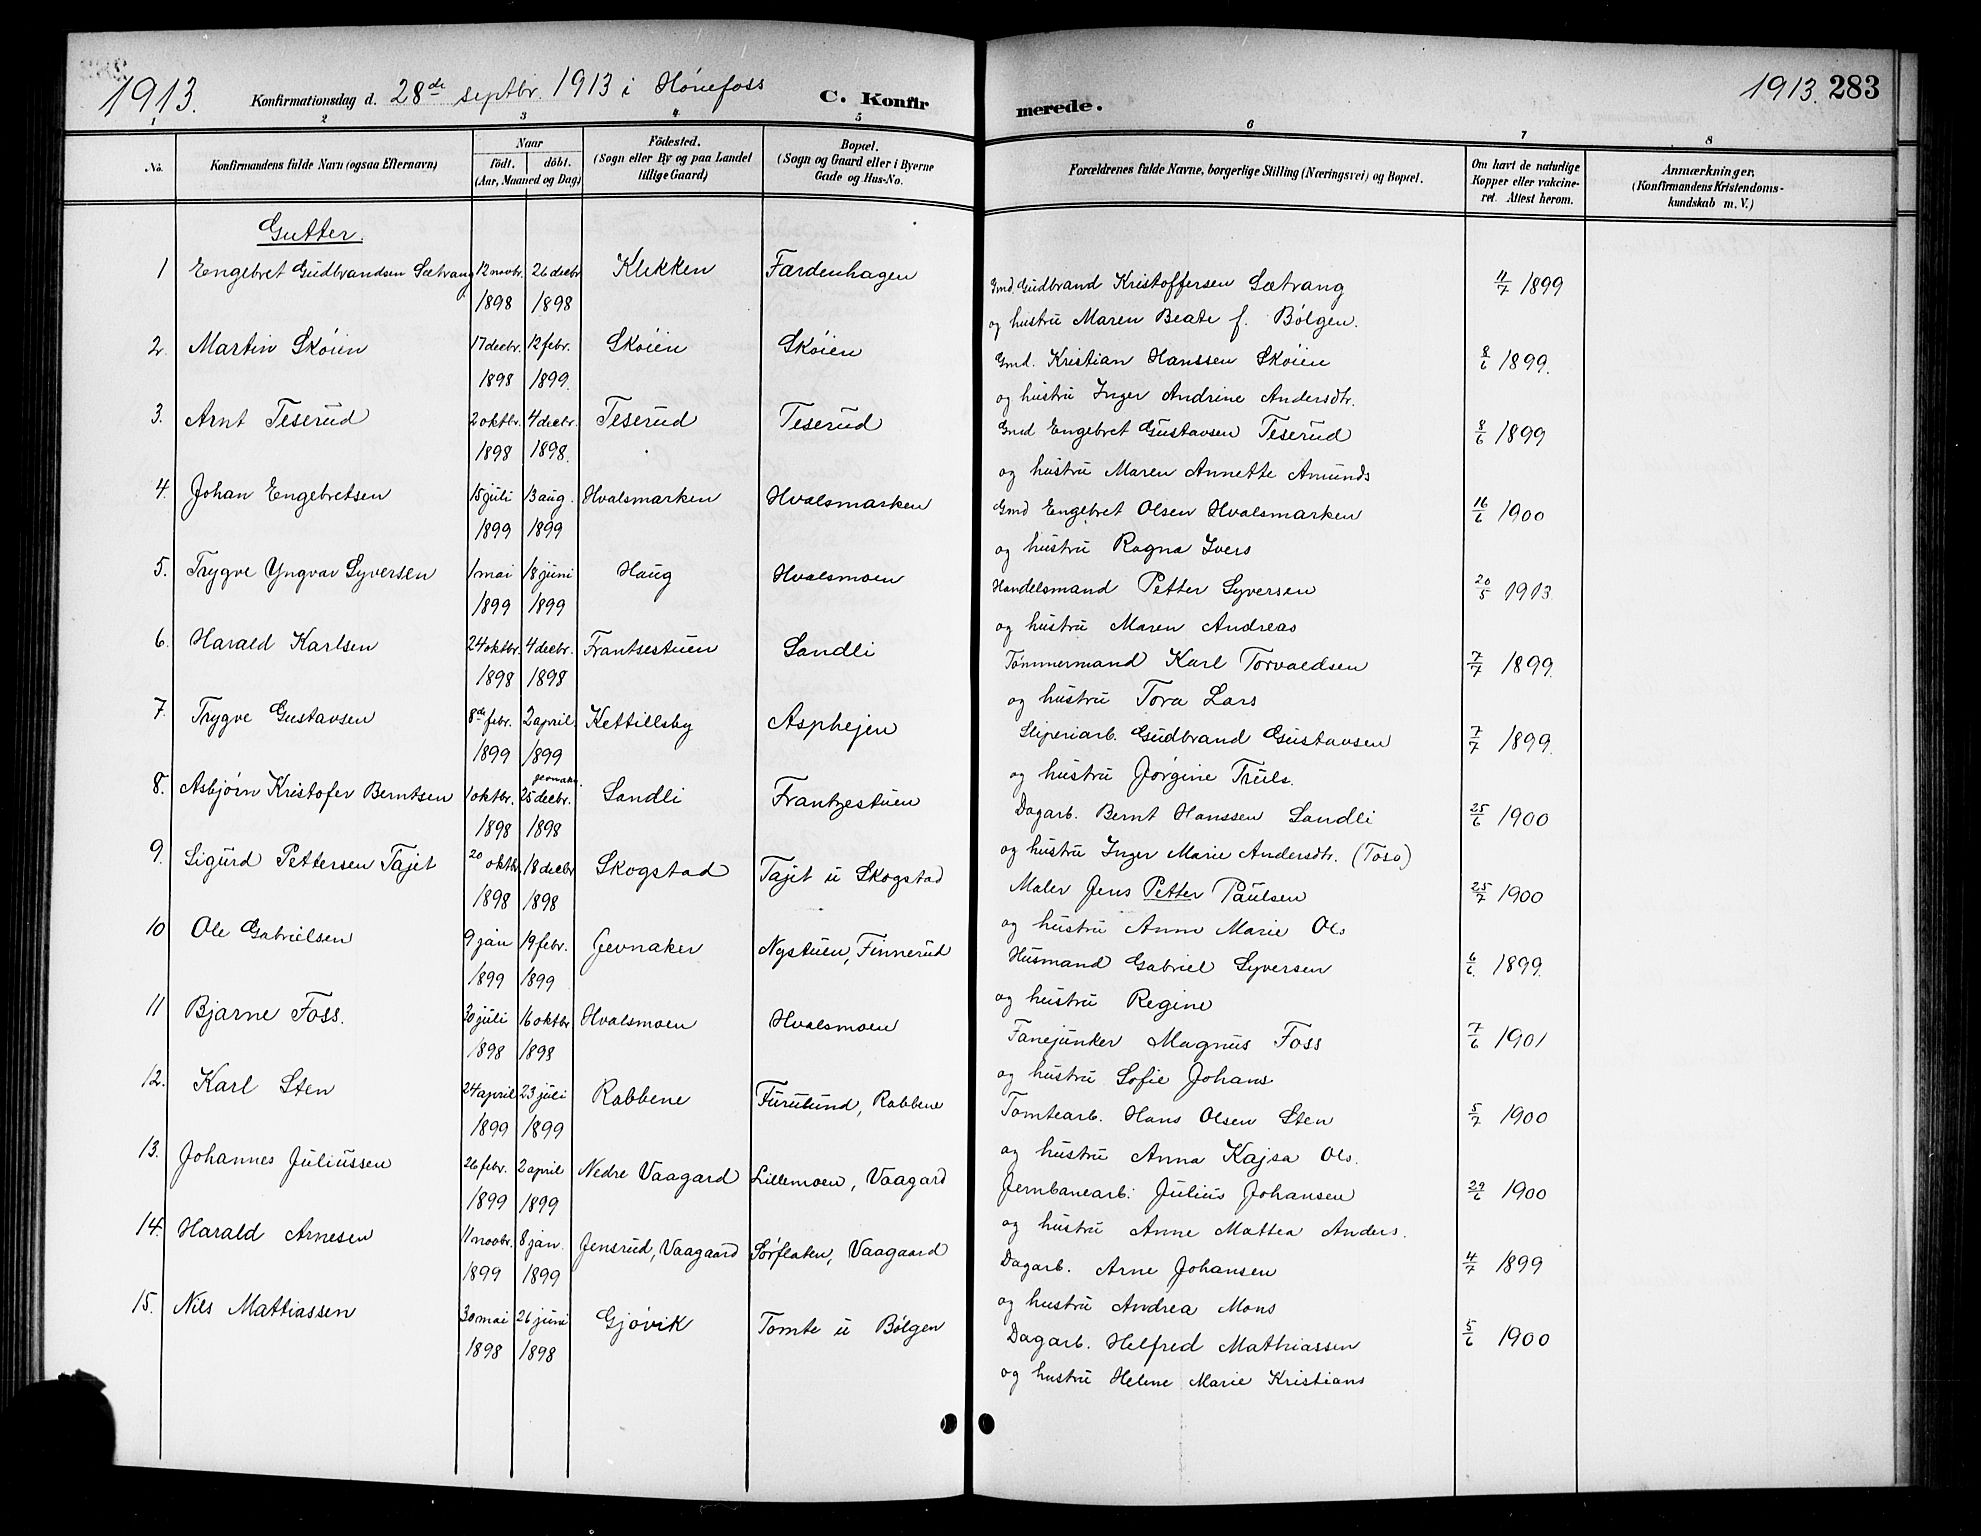 1913.
Konfirmationsdag d. 28de septbr. 1913 i Hønefoss
C. Konfirmerede.
1913. 283
1 2 3 4. 5 6 7 8
No.
Konfirmandens fulde Navn (ogsaa Efternavn)
Naar
födt. döbt.
(Aar, Maaned og Dag)
Födested.
(Sogn eller By og paa Landet
tillige Gaard)
Bopæl.
(Sogn og Gaard eller i Byerne
Gade og Hus-No.
Forældrenes fulde Navne, borgerlige Stilling (Næringsvei) og Bopæl.
Om havt de naturlige
Kopper eller vakcine-
ret. Attest herom.
Anmærkninger,
(Konfirmandens Kristendoms-
kundskab m. V.)
Gutter.
1 Engebret Gudbrandsen Sætrang 12 novbr. 1898 26 decbr 1898 Klekken Fardenhagen Gmd. Gudbrand Kristoffersen Sætrang 11/7 1899
og hustru Maren Beate f. Bølgen.
2. Martin Skøien 17 decbr. 1898 12 febr. 1899. Skøien Skøien Gmd. Kristian Hanssen Skøien 8/6 1899.
og hustru Inger Andrine Andersdtr.
3. Arnt Teserud 2 oktbr. 1898 4 decbr. 1898. Teserud Teserud Gmd Engebret Gustavsen Teserud 8/6 1899
og hustru Maren Annette Amunds
4. Johan Engebretsen 15 juli 1899 13 aug. 1899 Hvalsmarken Hvalsmarken Gmd Engebret Olsen Hvalsmarken 16/6 1900
og hustru Ragna Ivers
5. Trygve Yngvar Syversen 1 mai 1899 18 juni 1899 Haug Hvalsmoen Handelsmand Petter Syversen 20/5 1913
og hustru Maren Andreas
6. Harald Karlsen 24 oktbr. 1898 4 decbr. 1898 Frantsestuen Sandli Tømmermand Karl Torvaldsen 7/7 1899.
og hustru Tora Lars
7. Trygve Gustavsen 8de febr. 1899 2 april 1899 Kettillsby Asphejen Sliperiarb. Gudbrand Gustavsen 7/7 1899.
og hustru Jørgine Truls.
8. Asbjørn Kristofer Berntsen 1 oktbr. 1898 Jevnaker 25 decbr. 1898 Sandli Frantzestuen Dagarb. Bernt Hanssen Sandli 25/6 1900
og hustru Inger Marie Andersdtr. (Toso)
9. Sigurd Pettersen Tajet 20 oktbr 1898 18 decbr 1898 Skogstad Tajet u Skogstad Maler Jens Petter Paulsen 25/7 1900
og hustru Anne Marie Ols
10 Ole Gabrielsen 9 jan 1899 19 febr. 1899 Jevnaker Nystuen, Finnerud Husmand Gabriel Syversen 6/6. 1899.
og hustru Regine
11 Bjarne Foss. 30 juli 1898 16 oktbr 1898 Hvalsmoen Hvalsmoen Fanejunker Magnus Foss 7/6 1901
og hustru Sofie Johans
12. Karl Sten 24 april 1899 23 juli 1899 Rabbene Furulund, Rabbene Tomtearb. Hans Olsen Sten 5/7 1900
og hustru Anna Kajsa Ols.
13. Johannes Juliussen 26 febr. 1899 2 april 1899 Nedre Vaagard Lillemoen, Vaagard Jernbanearb. Julius Johansen 29/6 1900
og hustru Anne Mattea Anders.
14. Harald Arnesen 11 novbr. 1899 8 jan. 1899 Jensrud, Vaagaard Sørflaten, Vaagaard Dagarb. Arne Johansen 4/7 1899
og hustru Andrea Mons
15. Nils Mattiassen 30 mai 1898 26 juni 1898 Gjøvik Tomte u Bølgen Dagarb. Helfred Mathiassen 5/6 1900
og hustru Helene Marie Kristians